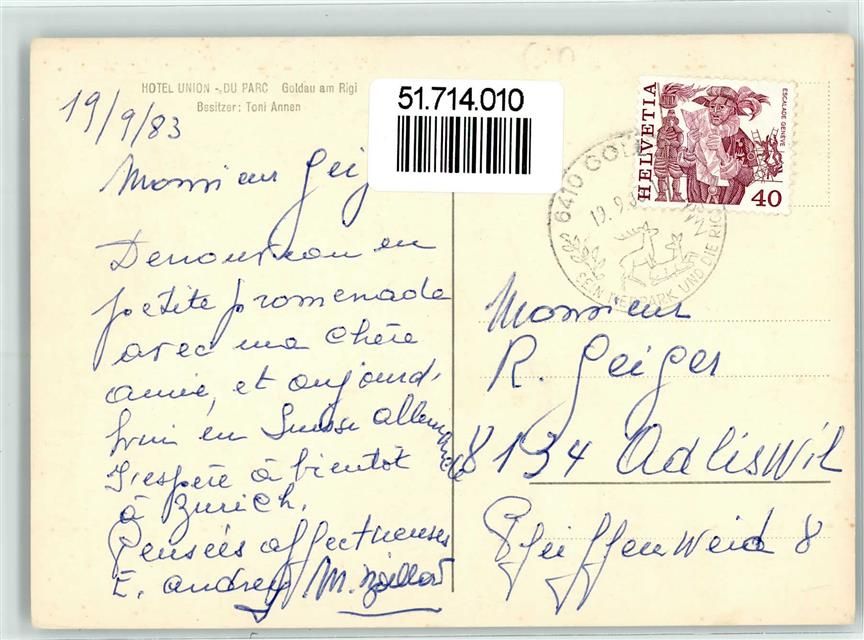 HOTEL UNION - DU PARC Goldau am Rigi
Besitzer: Toni Annen
19/9/83
51.714.010
Monsieur Geig
De nouveau en
petite promenade
avec ma chère
amie, et aujourd,
hui en Suisse allemande
J'espère à bientôt
à Zurich.
Pensées affectueuses
E. andrey M.
HELVETIA
ESCALADE GENÈVE
40
6410 GOL
19.9.8
SEIN TIERPARK UND DIE RIGI
Monsieur
R. Geiger
8134 Adliswil
Pfeiffenweid 8